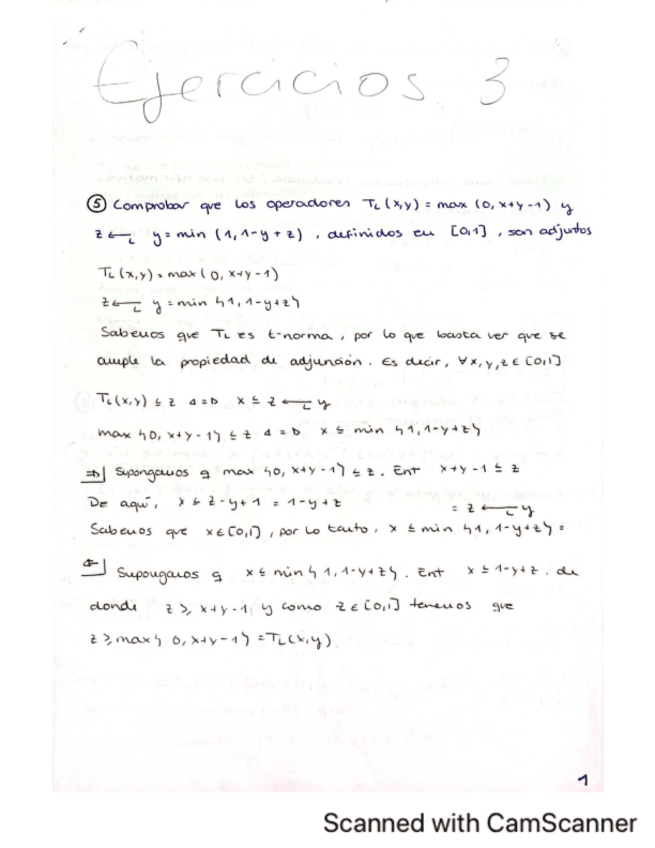 Ejercicios 3
⑤ Comprobar que los operadores T_L (x,y) = max (0, x+y-1) y
z ←_L y = min (1, 1-y+z), definidos en [0,1], son adjuntos
T_L (x,y) = max (0, x+y-1)
z ←_L y = min {1, 1-y+z}
Sabemos que T_L es t-norma, por lo que basta ver que se
cumple la propiedad de adjunción. Es decir, ∀x,y,z ∈ [0,1]
T_L(x,y) ≤ z ⇔ x ≤ z ←_L y
max {0, x+y-1} ≤ z ⇔ x ≤ min {1, 1-y+z}
⇒| Supongamos q max {0, x+y-1} ≤ z. Ent x+y-1 ≤ z
De aquí, x ≤ z-y+1 = 1-y+z
Sabemos que x ∈ [0,1], por lo tanto, x ≤ min {1, 1-y+z} =
= z ←_L y
⇐| Supongamos q x ≤ min {1, 1-y+z}. Ent x ≤ 1-y+z, de
donde z ≥ x+y-1 y como z ∈ [0,1] tenemos que
z ≥ max {0, x+y-1} = T_L(x,y).
1
Scanned with CamScanner